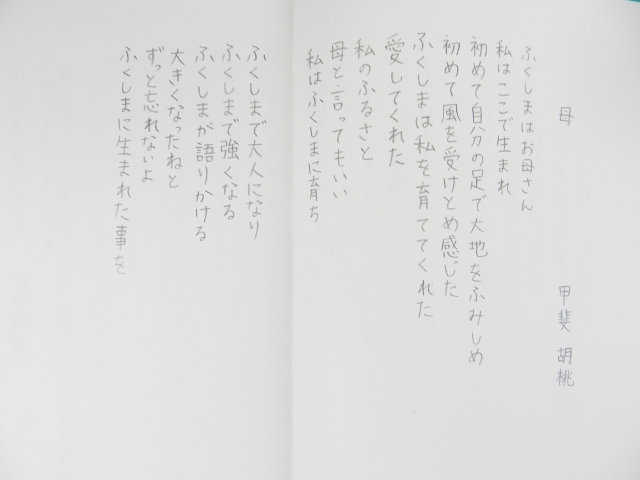 母
甲斐 胡桃
ふくしまはお母さん
私はここで生まれ
初めて自分の足で大地をふみしめ
初めて風を受けとめ感じた
ふくしまは私を育ててくれた
愛してくれた
私のふるさと
母と言ってもいい
私はふくしまに育ち
ふくしまで大人になり
ふくしまで強くなる
ふくしまが語りかける
大きくなったねと
ずっと忘れないよ
ふくしまに生まれた事を